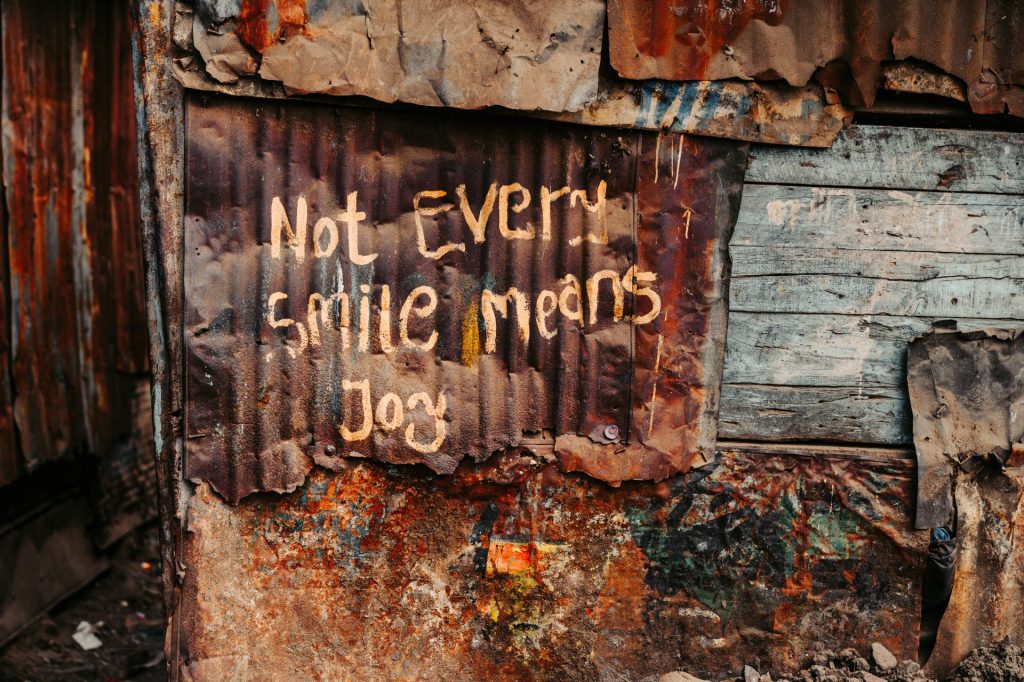 Not Every
Smile means
Joy